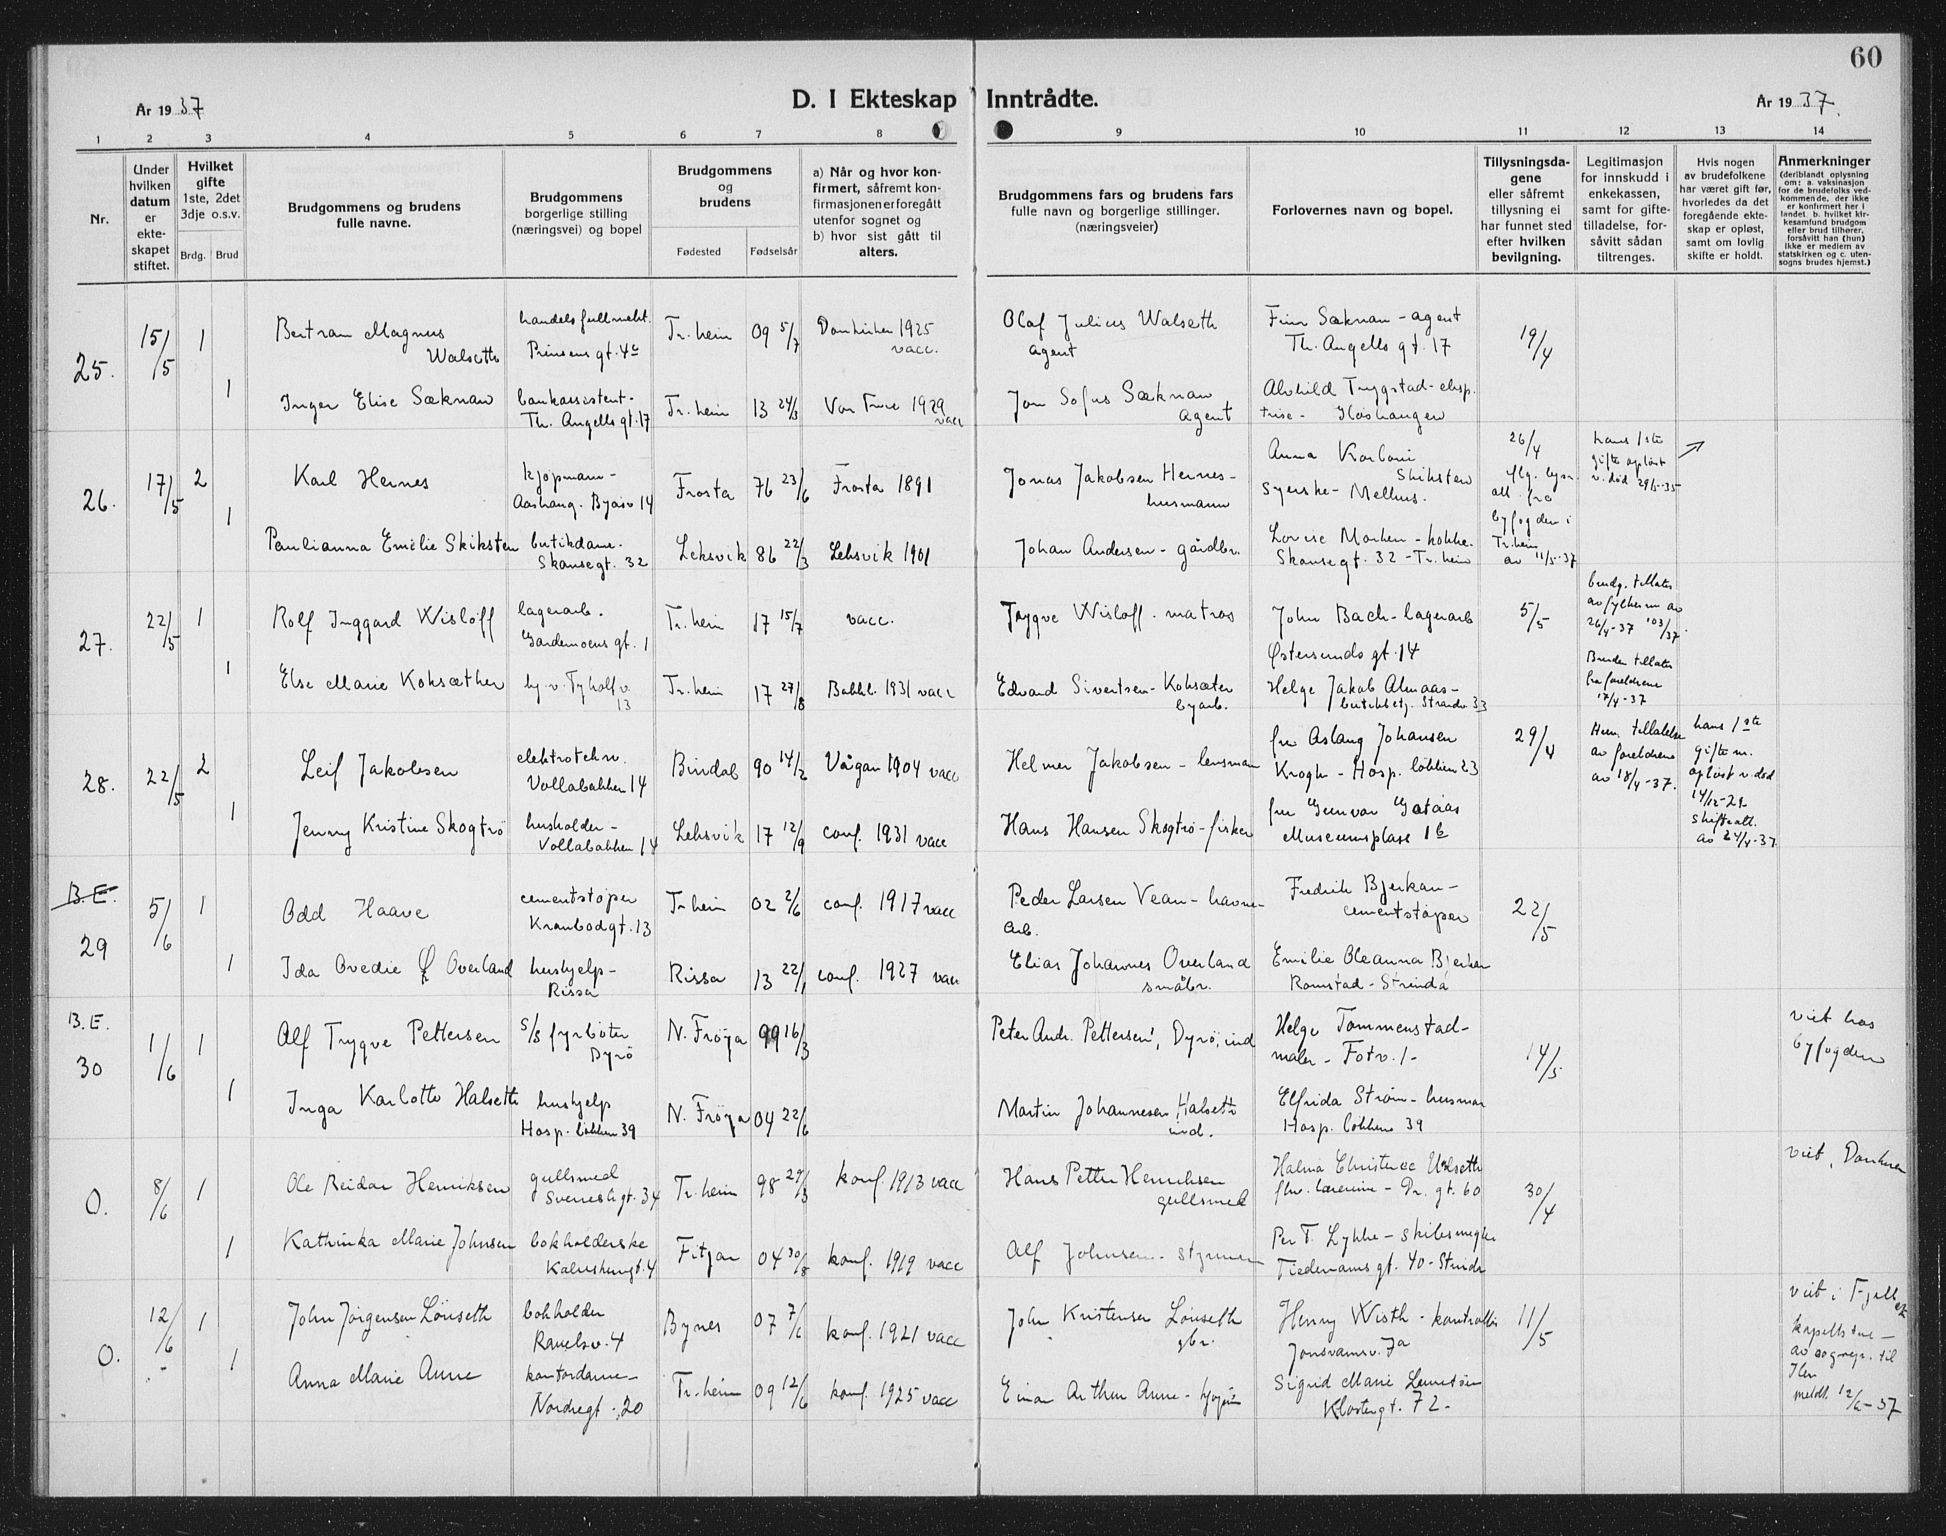 60
År 1937
D. I Ekteskap Inntrådte.
År 1937.
1 2 3 4 5 6 7 8 9 10 11 12 13 14
Nr.
Under hvilken datum er ekteskapet stiftet.
Hvilket gifte 1ste, 2det 3dje o.s.v.
Brdg. Brud
Brudgommens og brudens fulle navne.
Brudgommens borgerlige stilling (næringsvei) og bopel
Brudgommens og brudens
Fødested Fødselsår
a) Når og hvor konfirmert, såfremt konfirmasjonen er foregått utenfor sognet og
b) hvor sist gått til alters.
Brudgommens fars og brudens fars fulle navn og borgerlige stillinger. (næringsveier)
Forlovernes navn og bopel.
Tillysningsdagene eller såfremt tillysning ei har funnet sted efter hvilken bevilgning.
Legitimasjon for innskudd i enkekassen, samt for giftetilladelse, forsåvitt sådan tiltrenges.
Hvis nogen av brudefolkene har været gift før, hvorledes da det foregående ekteskap er opløst, samt om lovlig skifte er holdt.
Anmerkninger (deriblandt oplysning om: a. vaksinasjon for de brudefolks vedkommende, der ikke er konfirmert her i landet. b. hvilket kirkesamfund brudgom eller brud tilhører, forsåvitt han (hun) ikke er medlem av statskirken og c. utensogns brudes hjemst.)
25. 15/5 1 Bertran Magnus Walseth handelsfullmekt. Prinsens gt. 4c Tr.heim 09 5/7 Domkirken 1925 vacc. Olaf Julius Walseth agent Finn Sæknan - agent Th. Angells gt. 17 19/4
1 Inger Elise Sæknan bankassistent - Th. Angells gt. 17 Tr.heim 13 24/3 Vor Frue 1929 vacc Jon Sofus Sæknan agent Alvhild Trygstad - eksp. trise -
26. 17/5 2 Karl Hernes kjøpmann - Byåsv 14 Frosta 76 23/6 Frosta 1891 Jonas Jakobsen Hernes - husmann Anna Skiksten syerske - Melhus. 26/4 byfogden i Tr.heim av 11/5-37 hans 1ste gifte opløst v. død 29/5-35
1 Paulianna Emelie Skiksten butikdame. Skansegt. 32 Leksvik 86 22/3 Leksvik 1901 Johan Andersen - gårdbr. Lovise Morken - kokke. Skansegt. 32 - Tr.heim
27. 22/5 1 Rolf Inggard Wisløff lagerarb. Gardemoens gt. 1 Tr.heim 17 15/7 vacc. Trygve Wisløff - matros John Bach - lagerarb Østersunds gt. 14 5/5 brudg. tillates av fylkesm av 26/4-37 103/37.
1 Else Marie Koksæther hj. v. Tyholt v. 13 Tr.heim 17 27/8 Bakkl. 1931 vacc Edvard Sivertsen - Koksæter byarb. Helge Jakob Almaas - butikbetj. Strandv. 33 Bruden tillates fra foreldrene 17/4-37
28. 22/5 2 Leif Jakobsen elektrotekn. Vollabakken 14 Bindal 90 14/2 Vågan 1904 vacc Helmer Jakobsen - lensman fru Aslaug Johansen Krogh - Hosp. løkken 23 29/4 Hun. tillatelse av foreldrene av 18/4-37. hans 1ste giftem. opløst v. død 14/12-29 skifteatt. av 24/4-37.
1 Jenny Kristine Skogtrø husholder - Vollabakken 14 Leksvik 17 12/9 conf. 1931 vacc Hans Hansen Skogtrø - fisker fru Gunvor Gataas Museumsplass 1b
B.E. 29 5/6 1 Odd Haave cementstøper Krambodgt. 13 Tr heim 02 2/6 conf. 1917 vacc Peder Larsen Vean - havnearb. Fredrik Bjerkan - cementstøper 22/5
1 Ida Ovedie Overland hushjelp - Rissa Rissa 13 22/1 conf. 1927 vacc Elias Johannes Overland småbr. Emilie Oleanna Bjerkan Romstad - Strinda
B.E. 30 1/6 1 Alf Trygve Pettersen s/s fyrbøter Dyrø N. Frøya 99 16/3 Peter Andr. Pettersen, Dyrø, ind Helge Tommenstad - maler - Fotv. 1 - 14/5 viet hos byfogden
1 Inga Karlotte Halseth hushjelp Hosp. løkken 39 N. Frøya 04 22/6 Martin Johannesen Halseth ind. Elfrida Strøm - husmor Hosp. løkken 39
0. 8/6 1 Ole Reidar Henriksen gullsmed Sverresli gt. 34 Tr.heim 98 29/3 konf. 1913 vacc Hans Petter Henriksen gullsmed Halma Christence Ulseth fhv. lærerinne - Pr. gt. 60 30/4 viet, Domkirken
1 Kathinka Marie Johnsen bokholderske Fitjar 04 30/8 konf. 1919 vacc Alf Johnsen - styrman Per T. Lykke - skibsmegler Tiedemans gt. 40 - Strinda
0. 12/6 1 John Jørgensen Lønseth bokholder Ranelsv. 4 Bynes 07 7/6 konf. 1921 vacc John Kristensen Lønseth gbr. Henry Wisth - kontrollør Jonsvannsv. 7a 11/5 viet i Fjellsek. kapellstue - av sognepr. til Ilen meldt 12/6-37
1 Anna Marie Aune kontordame - Nordregt. 20 Tr.heim 09 12/6 konf. 1925 vacc Einar Arthur Aune - kjøpm Sigrid Marie Klostergt. 72 -